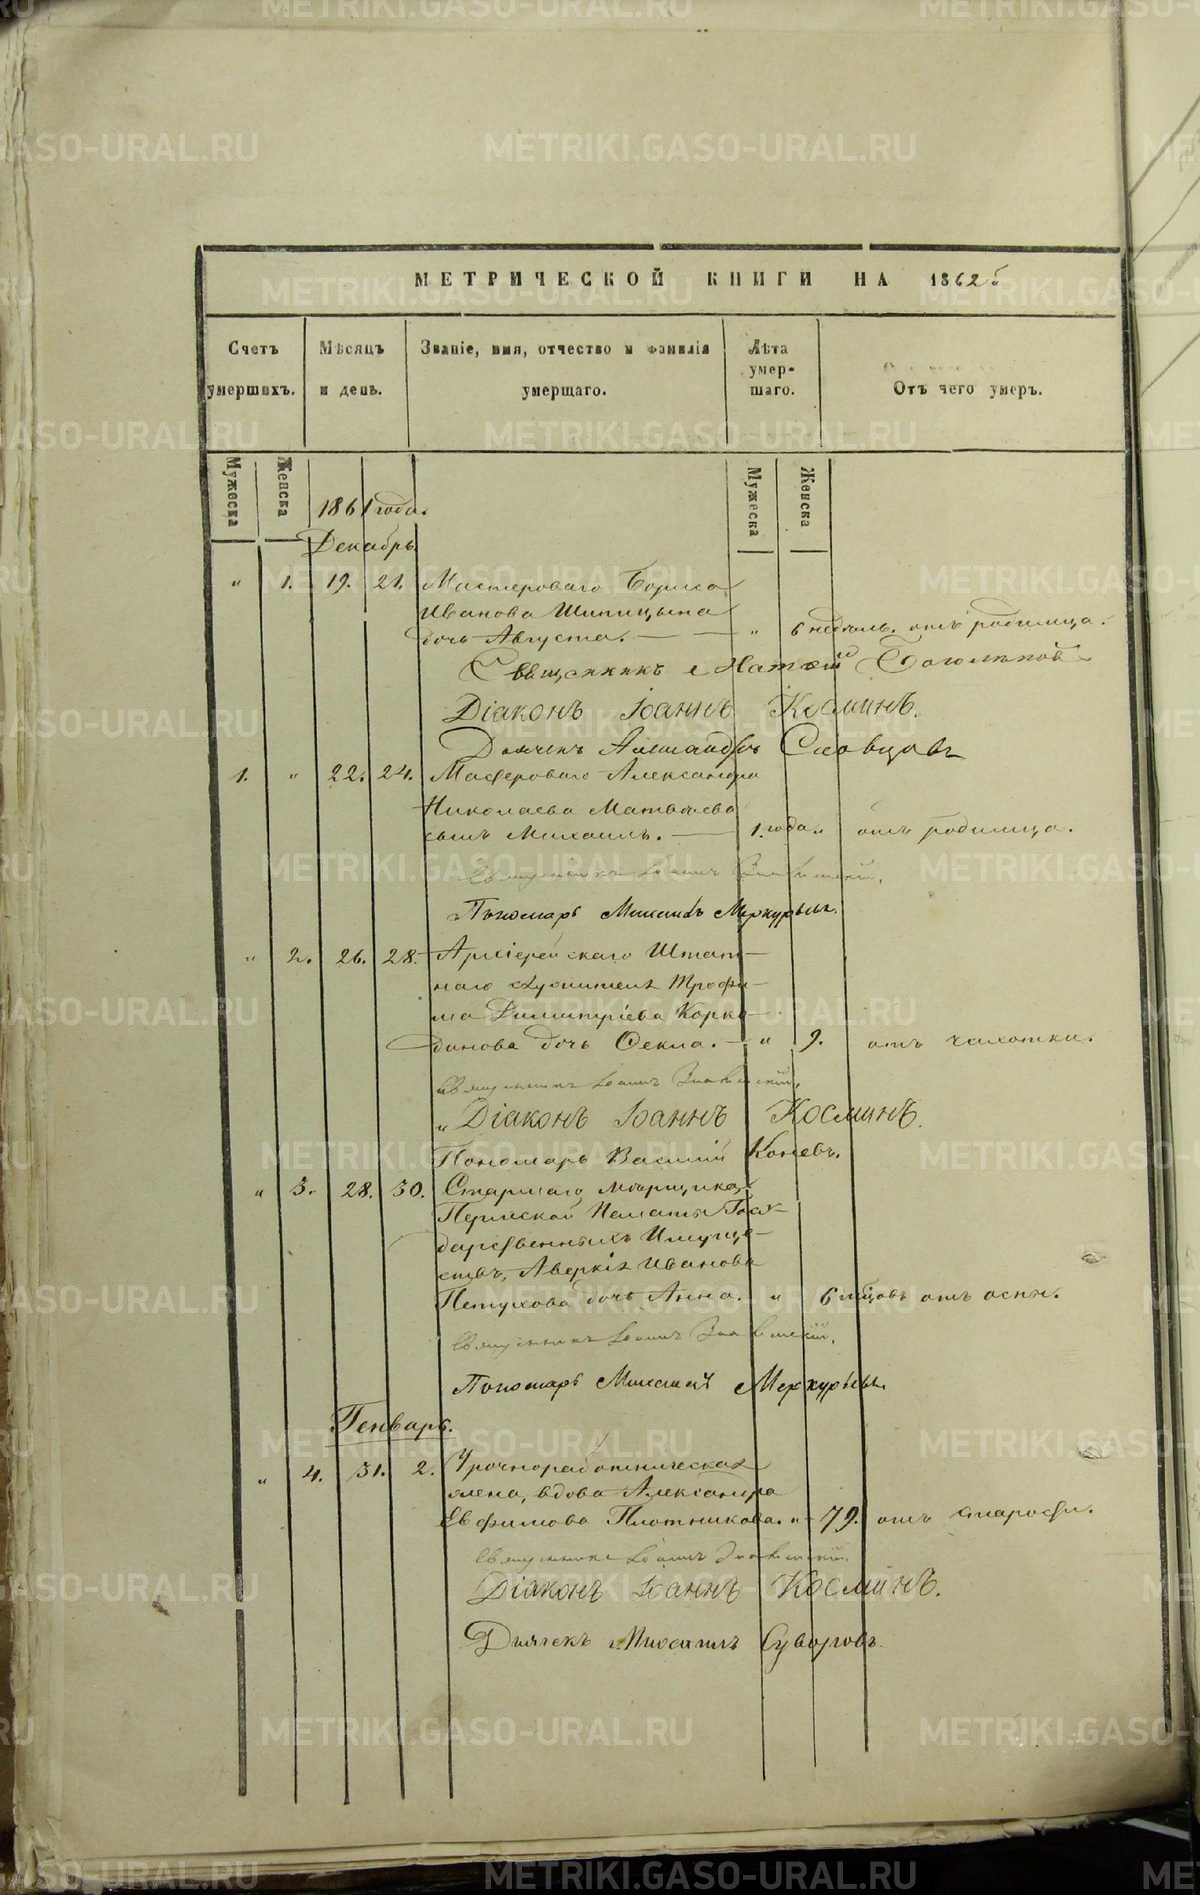 МЕТРИЧЕСКОЙ КНИГИ НА 1862
Счетъ умершихъ.
Мѣсяцъ и день.
Званіе, имя, отчество и фамилія умершаго.
Лѣта умер-
шаго.
Отъ чего умеръ.
Мужеска
Женска
Мужеска
Женска
1861 года.
Декабрь.
" 1. 19. 21. Мастероваго Бориса
Иванова Шипицына
дочь Августа. — — " 6 недѣль. отъ родимца.
Священникъ
Діаконъ Іоаннъ Косминъ.
Дьячекъ Александръ Словцовъ
1. " 22. 24. Мастероваго Александра
Николаева Матвѣева
сынъ Михаилъ. — 1. года. " отъ родимца.
Священникъ Іоаннъ
Пономарь Михаилъ Меркурьевъ.
" 2. 26. 28. Архіерейскаго Штат-
наго служителя Трофи-
ма Димитріева Корко-
динова дочь Ѳекла. — " 9. отъ чахотки.
Священникъ Іоаннъ
" Діаконъ Іоаннъ Косминъ.
Пономарь Василій Коневъ.
" 3. 28. 30. Старшаго
Пермской Палаты Госу-
дарственныхъ Имуще-
ствъ, Аверкія Иванова
Пѣтухова дочь Анна. " 6 мѣсяцовъ отъ оспы.
Священникъ Іоаннъ
Пономарь Михаилъ Меркурьевъ.
Генварь.
" 4. 31. 2. Урочноработническая
жена, вдова Александра
Евфимова Плотникова. " 79. отъ старости.
Священникъ Іоаннъ
Діаконъ Іоаннъ Косминъ.
Дьячекъ Михаилъ Суворовъ.
METRIKI.GASO-URAL.RU